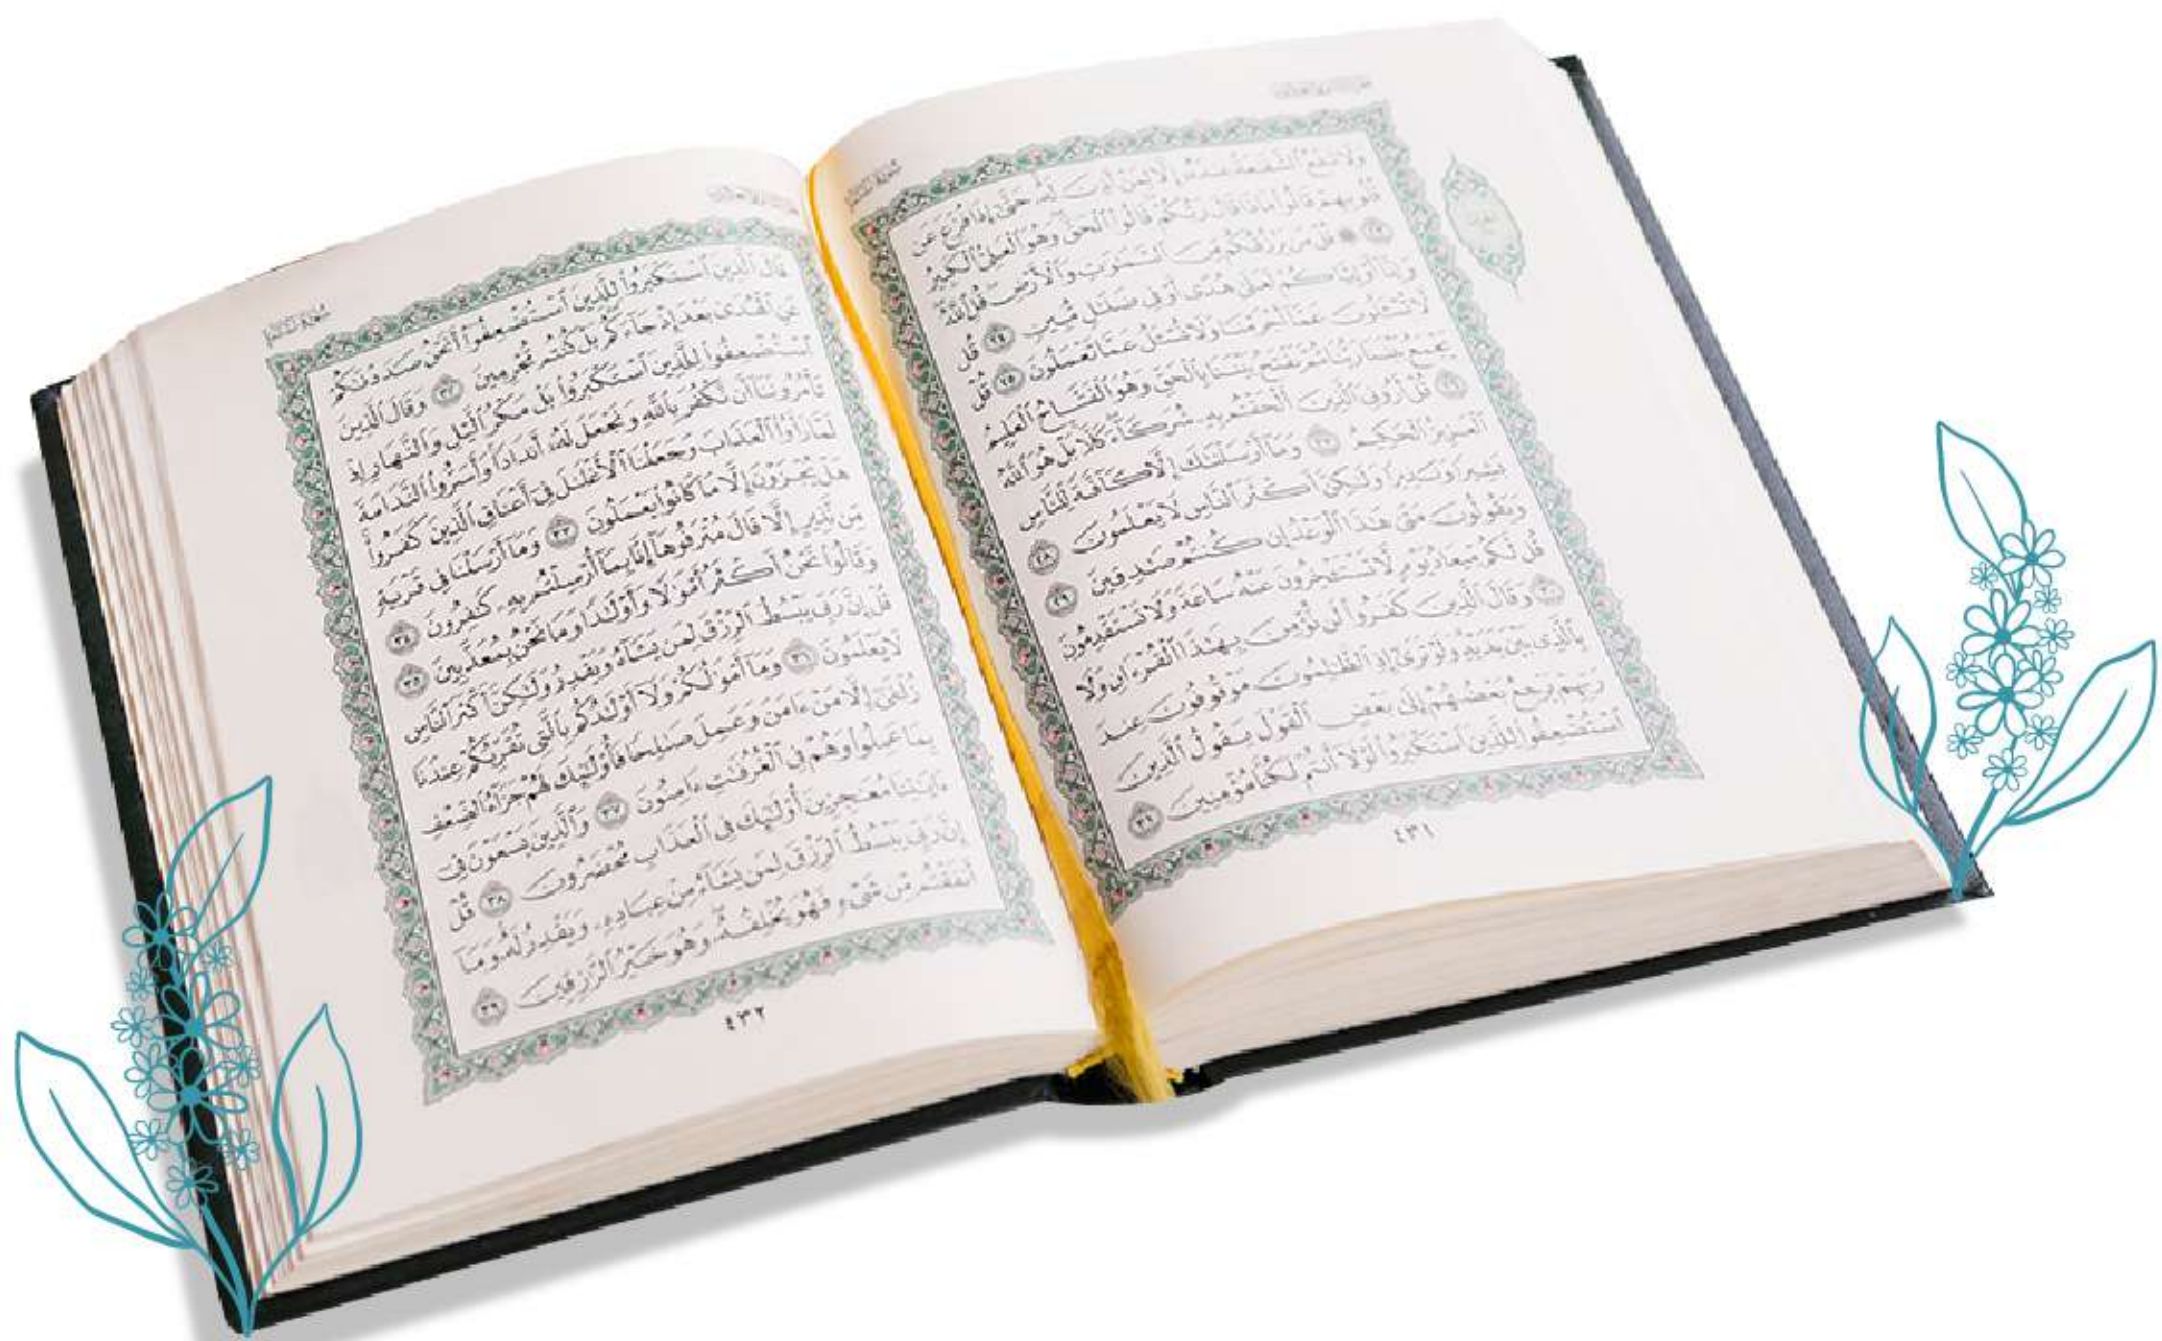 وَلَا تَنفَعُ ٱلشَّفَٰعَةُ عِندَهُۥٓ إِلَّا لِمَنْ أَذِنَ لَهُۥ حَتَّىٰٓ إِذَا فُزِّعَ عَن
قُلُوبِهِمْ قَالُوا۟ مَاذَا قَالَ رَبُّكُمْ قَالُوا۟ ٱلْحَقَّ وَهُوَ ٱلْعَلِىُّ ٱلْكَبِيرُ
٢٣ ۞ قُلْ مَن يَرْزُقُكُم مِّنَ ٱلسَّمَٰوَٰتِ وَٱلْأَرْضِ قُلِ ٱللَّهُ
وَإِنَّآ أَوْ إِيَّاكُمْ لَعَلَىٰ هُدًى أَوْ فِى ضَلَٰلٍ مُّبِينٍ ٢٤ قُل
لَّا تُسْـَٔلُونَ عَمَّآ أَجْرَمْنَا وَلَا نُسْـَٔلُ عَمَّا تَعْمَلُونَ ٢٥ قُلْ
يَجْمَعُ بَيْنَنَا رَبُّنَا ثُمَّ يَفْتَحُ بَيْنَنَا بِٱلْحَقِّ وَهُوَ ٱلْفَتَّاحُ ٱلْعَلِيمُ
٢٦ قُلْ أَرُونِىَ ٱلَّذِينَ أَلْحَقْتُم بِهِۦ شُرَكَآءَ كَلَّا بَلْ هُوَ ٱللَّهُ
ٱلْعَزِيزُ ٱلْحَكِيمُ ٢٧ وَمَآ أَرْسَلْنَٰكَ إِلَّا كَآفَّةً لِّلنَّاسِ
بَشِيرًا وَنَذِيرًا وَلَٰكِنَّ أَكْثَرَ ٱلنَّاسِ لَا يَعْلَمُونَ ٢٨
وَيَقُولُونَ مَتَىٰ هَٰذَا ٱلْوَعْدُ إِن كُنتُمْ صَٰدِقِينَ ٢٩
قُل لَّكُم مِّيعَادُ يَوْمٍ لَّا تَسْتَـْٔخِرُونَ عَنْهُ سَاعَةً وَلَا تَسْتَقْدِمُونَ
٣٠ وَقَالَ ٱلَّذِينَ كَفَرُوا۟ لَن نُّؤْمِنَ بِهَٰذَا ٱلْقُرْءَانِ وَلَا
بِٱلَّذِى بَيْنَ يَدَيْهِ وَلَوْ تَرَىٰٓ إِذِ ٱلظَّٰلِمُونَ مَوْقُوفُونَ عِندَ
رَبِّهِمْ يَرْجِعُ بَعْضُهُمْ إِلَىٰ بَعْضٍ ٱلْقَوْلَ يَقُولُ ٱلَّذِينَ
ٱسْتُضْعِفُوا۟ لِلَّذِينَ ٱسْتَكْبَرُوا۟ لَوْلَآ أَنتُمْ لَكُنَّا مُؤْمِنِينَ ٣١
٤٣١
قَالَ ٱلَّذِينَ ٱسْتَكْبَرُوا۟ لِلَّذِينَ ٱسْتُضْعِفُوٓا۟ أَنَحْنُ صَدَدْنَٰكُمْ
عَنِ ٱلْهُدَىٰ بَعْدَ إِذْ جَآءَكُم بَلْ كُنتُم مُّجْرِمِينَ ٣٢ وَقَالَ ٱلَّذِينَ
ٱسْتُضْعِفُوا۟ لِلَّذِينَ ٱسْتَكْبَرُوا۟ بَلْ مَكْرُ ٱلَّيْلِ وَٱلنَّهَارِ إِذْ
تَأْمُرُونَنَآ أَن نَّكْفُرَ بِٱللَّهِ وَنَجْعَلَ لَهُۥٓ أَندَادًا وَأَسَرُّوا۟ ٱلنَّدَامَةَ
لَمَّا رَأَوُا۟ ٱلْعَذَابَ وَجَعَلْنَا ٱلْأَغْلَٰلَ فِىٓ أَعْنَاقِ ٱلَّذِينَ كَفَرُوا۟
هَلْ يُجْزَوْنَ إِلَّا مَا كَانُوا۟ يَعْمَلُونَ ٣٣ وَمَآ أَرْسَلْنَا فِى قَرْيَةٍ
مِّن نَّذِيرٍ إِلَّا قَالَ مُتْرَفُوهَآ إِنَّا بِمَآ أُرْسِلْتُم بِهِۦ كَٰفِرُونَ ٣٤
وَقَالُوا۟ نَحْنُ أَكْثَرُ أَمْوَٰلًا وَأَوْلَٰدًا وَمَا نَحْنُ بِمُعَذَّبِينَ ٣٥
قُلْ إِنَّ رَبِّى يَبْسُطُ ٱلرِّزْقَ لِمَن يَشَآءُ وَيَقْدِرُ وَلَٰكِنَّ أَكْثَرَ ٱلنَّاسِ
لَا يَعْلَمُونَ ٣٦ وَمَآ أَمْوَٰلُكُمْ وَلَآ أَوْلَٰدُكُم بِٱلَّتِى تُقَرِّبُكُمْ عِندَنَا
زُلْفَىٰٓ إِلَّا مَنْ ءَامَنَ وَعَمِلَ صَٰلِحًا فَأُو۟لَٰٓئِكَ لَهُمْ جَزَآءُ ٱلضِّعْفِ
بِمَا عَمِلُوا۟ وَهُمْ فِى ٱلْغُرُفَٰتِ ءَامِنُونَ ٣٧ وَٱلَّذِينَ يَسْعَوْنَ فِىٓ
ءَايَٰتِنَا مُعَٰجِزِينَ أُو۟لَٰٓئِكَ فِى ٱلْعَذَابِ مُحْضَرُونَ ٣٨ قُلْ
إِنَّ رَبِّى يَبْسُطُ ٱلرِّزْقَ لِمَن يَشَآءُ مِنْ عِبَادِهِۦ وَيَقْدِرُ لَهُۥ وَمَآ
أَنفَقْتُم مِّن شَىْءٍ فَهُوَ يُخْلِفُهُۥ وَهُوَ خَيْرُ ٱلرَّٰزِقِينَ ٣٩
٤٣٢